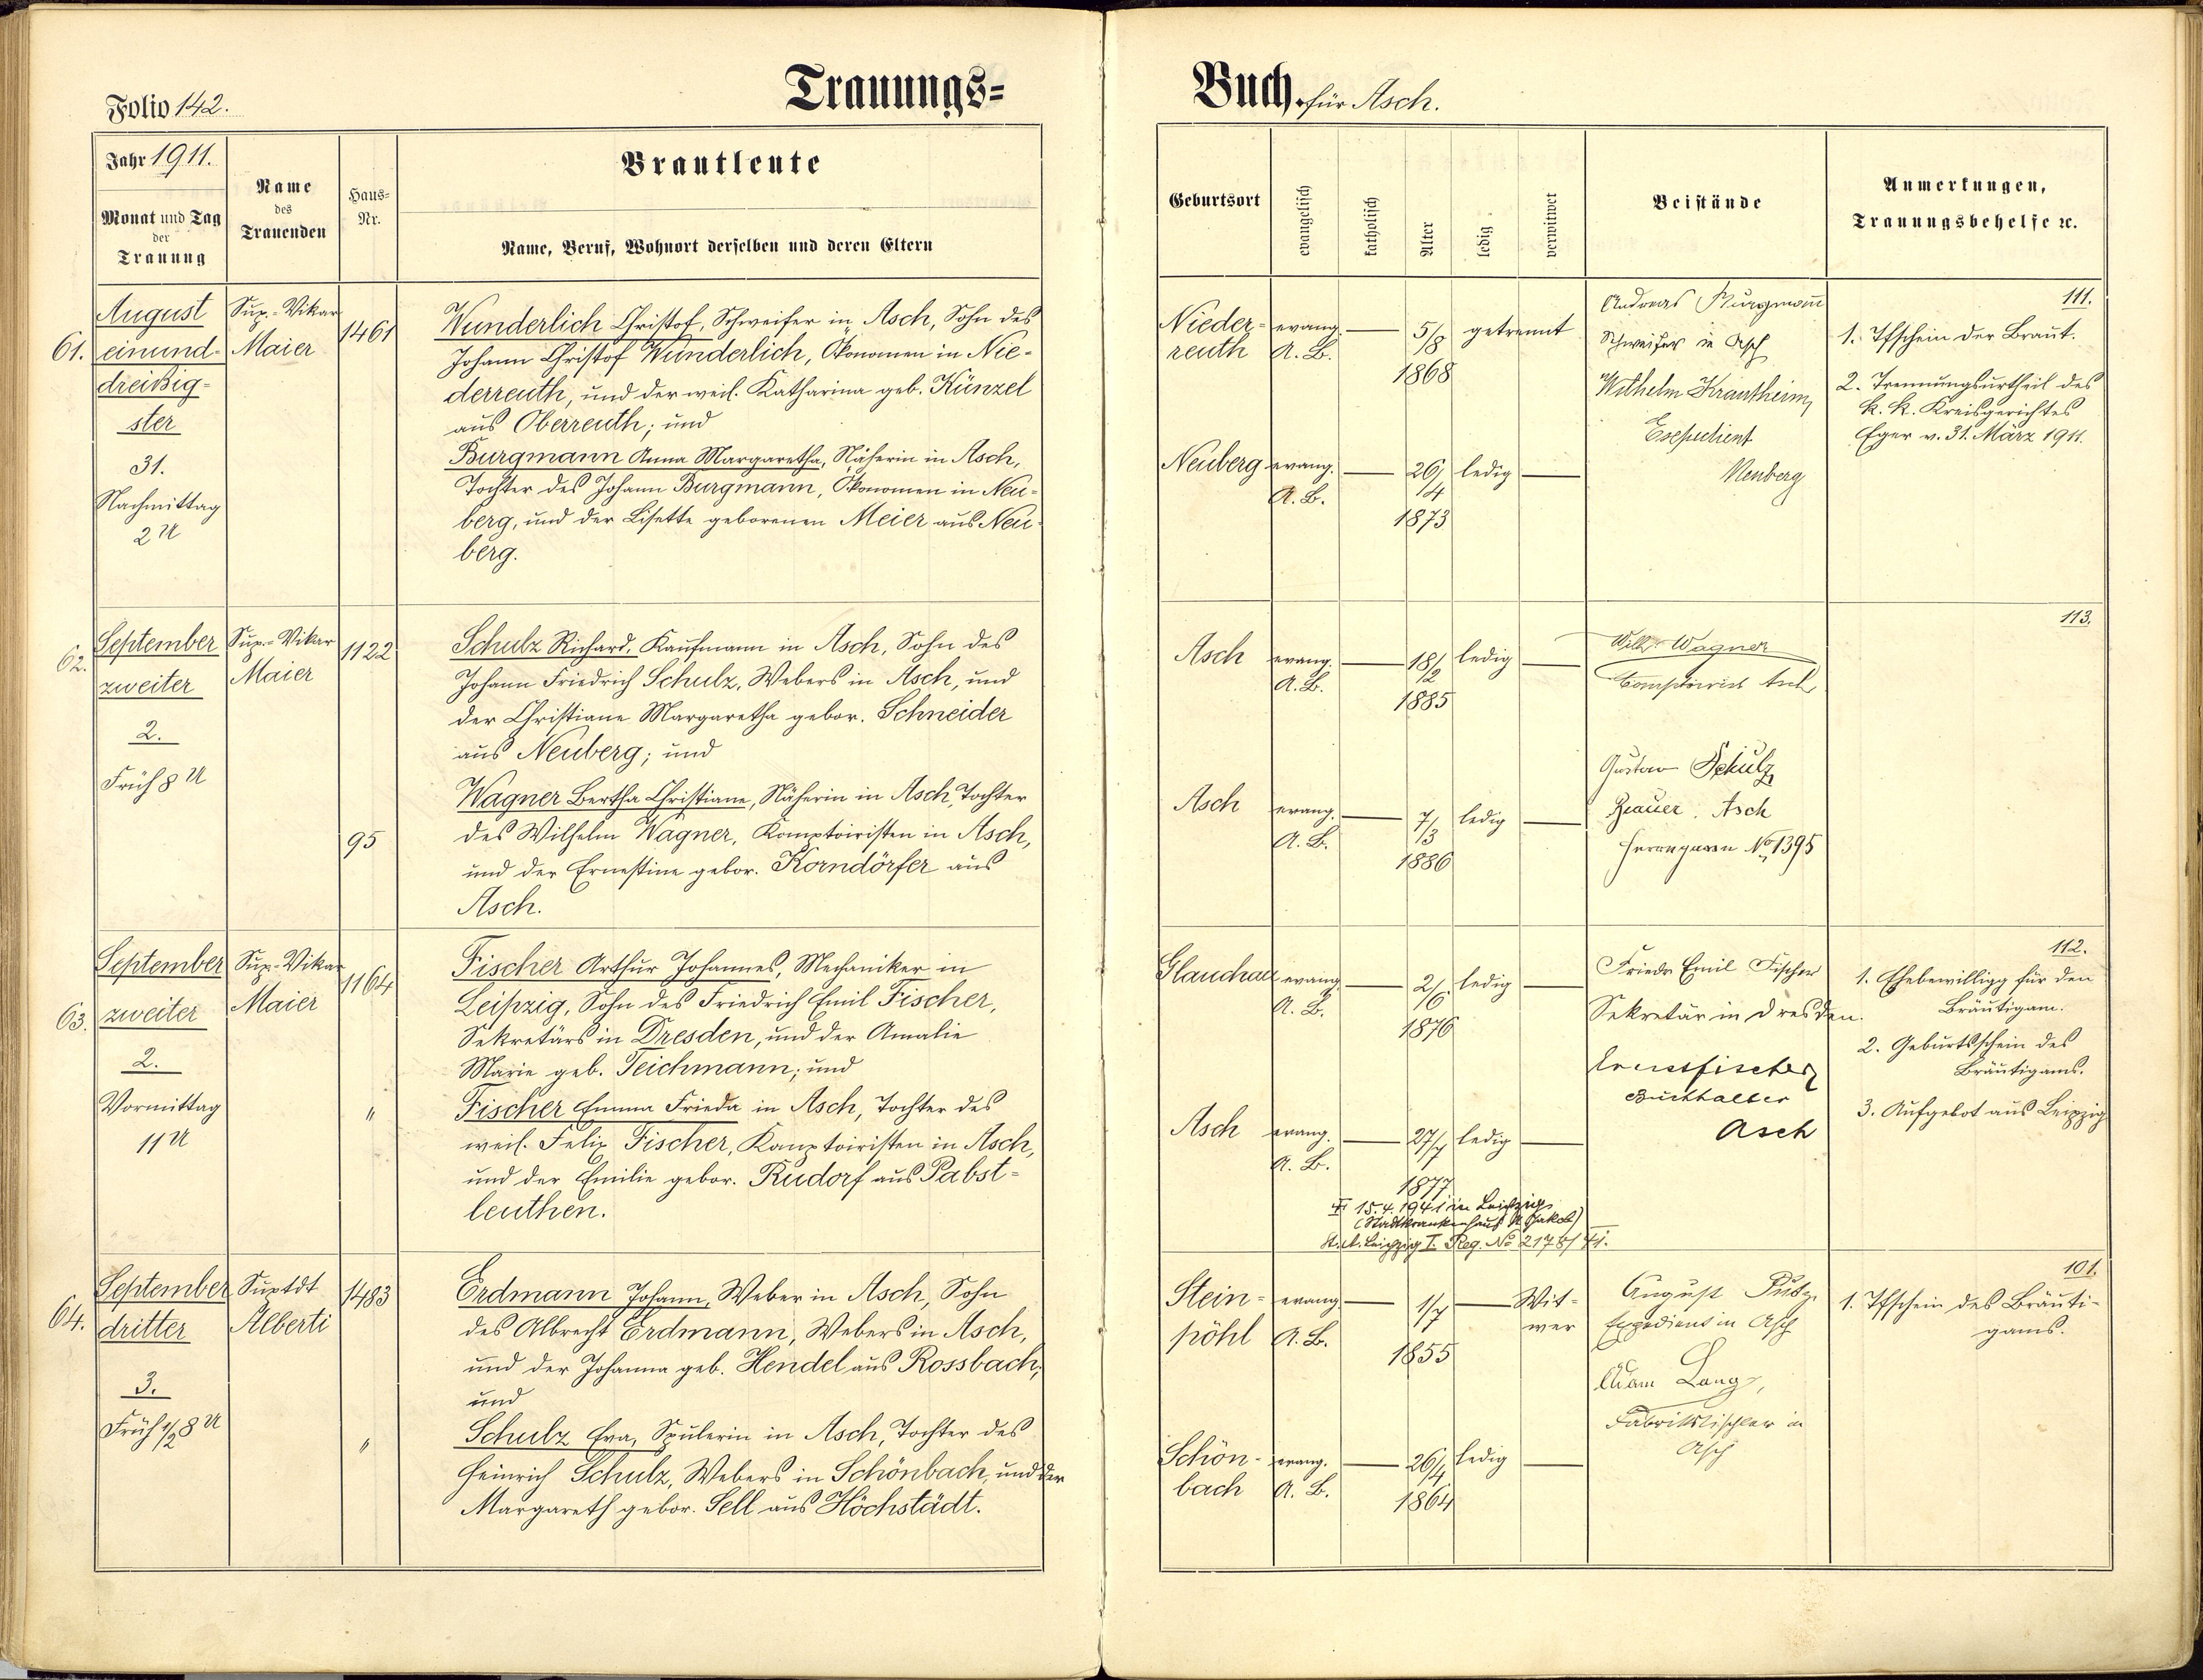 Folio 142.
Trauungs=
Jahr 1911.
Monat und Tag
der
Trauung
Name
des
Trauenden
Haus=
Nr.
Brautleute
Name, Beruf, Wohnort derselben und deren Eltern
61.
August
einund-
dreißig-
ster
31.
Nachmittag
2 U
Sup.-Vikar
Maier
1461
Wunderlich Christof, Schweifer in Asch, Sohn des
Johann Christof Wunderlich, Ökonomen in Nie-
derreuth, und der weil. Katharina geb. Künzel
aus Oberreuth; und
Burgmann Anna Margaretha, Näherin in Asch,
Tochter des Johann Burgmann, Ökonomen in Neu-
berg, und der Lisette geborenen Meier aus Neu-
berg.
62.
September
zweiter
2.
Früh 8 U
Sup.-Vikar
Maier
1122
95
Schulz Richard, Kaufmann in Asch, Sohn des
Johann Friedrich Schulz, Webers in Asch, und
der Christiane Margaretha gebor. Schneider
aus Neuberg; und
Wagner Bertha Christiane, Näherin in Asch, Tochter
des Wilhelm Wagner, Komptoiristen in Asch,
und der Ernestine gebor. Korndörfer aus
Asch.
63.
September
zweiter
2.
Vormittag
11 U
Sup.-Vikar
Maier
1164
"
Fischer Arthur Johannes, Mechaniker in
Leipzig, Sohn des Friedrich Emil Fischer,
Sekretärs in Dresden, und der Amalie
Marie geb. Teichmann; und
Fischer Emma Frieda in Asch, Tochter des
weil. Felix Fischer, Komptoiristen in Asch,
und der Emilie gebor. Rudorf aus Pabst-
leuthen.
64.
September
dritter
3.
Früh 1/2 8 U
Suptdt
Alberti
1483
"
Erdmann Johann, Weber in Asch, Sohn
des Albrecht Erdmann, Webers in Asch,
und der Johanna geb. Hendel aus Rossbach;
und
Schulz Eva, Spulerin in Asch, Tochter des
Heinrich Schulz, Webers in Schönbach, und der
Margareth gebor. Sell aus Höchstädt.
Buch für Asch.
Geburtsort
evangelisch
katholisch
Alter
ledig
verwitwet
Beistände
Anmerkungen,
Trauungsbehelfe ꝛc.
Nieder-
reuth
evang.
A. B.
5/8
1868
getrennt
Neuberg
evang.
A. B.
26/4
1873
ledig
Andreas Burgmann
Schweifer in Asch
Wilhelm Krautheim,
Neuberg
111.
1. Tfschein der Braut.
2. Trennungsurtheil des
k. k. Kreisgerichtes
Eger v. 31. März 1911.
Asch
evang.
A. B.
18/2
1885
ledig
Asch
evang.
A. B.
7/3
1886
ledig
Wilh. Wagner
Comptoirist Asch
Gustav Schulz
Brauer. Asch
Herrngasse No 1395
113.
Glauchau
evang.
A. B.
2/6.
1876
ledig
Asch
evang.
A. B.
27/7
1877
ledig
15.4.1941 in Leipzig
(Stadtkrankenhaus St. Jakob)
St. A. Leipzig I. Reg. No 2178/41.
Friedr Emil Fischer
Sekretär in Dresden.
Ernst Fischer
Buchhalter
Asch
112.
1. Ehebewilligg für den
Bräutigam.
2. Geburtsschein des
Bräutigams.
3. Aufgebot aus Leipzig
Stein-
pöhl
evang.
A. B.
1/7
1855
Wit-
wer
Schön-
bach
evang.
A. B.
26/4
1864
ledig
August
Expedient in Asch
Adam Lang,
Fabrikstischler in
Asch
101.
1. Tfschein des Bräuti-
gams.